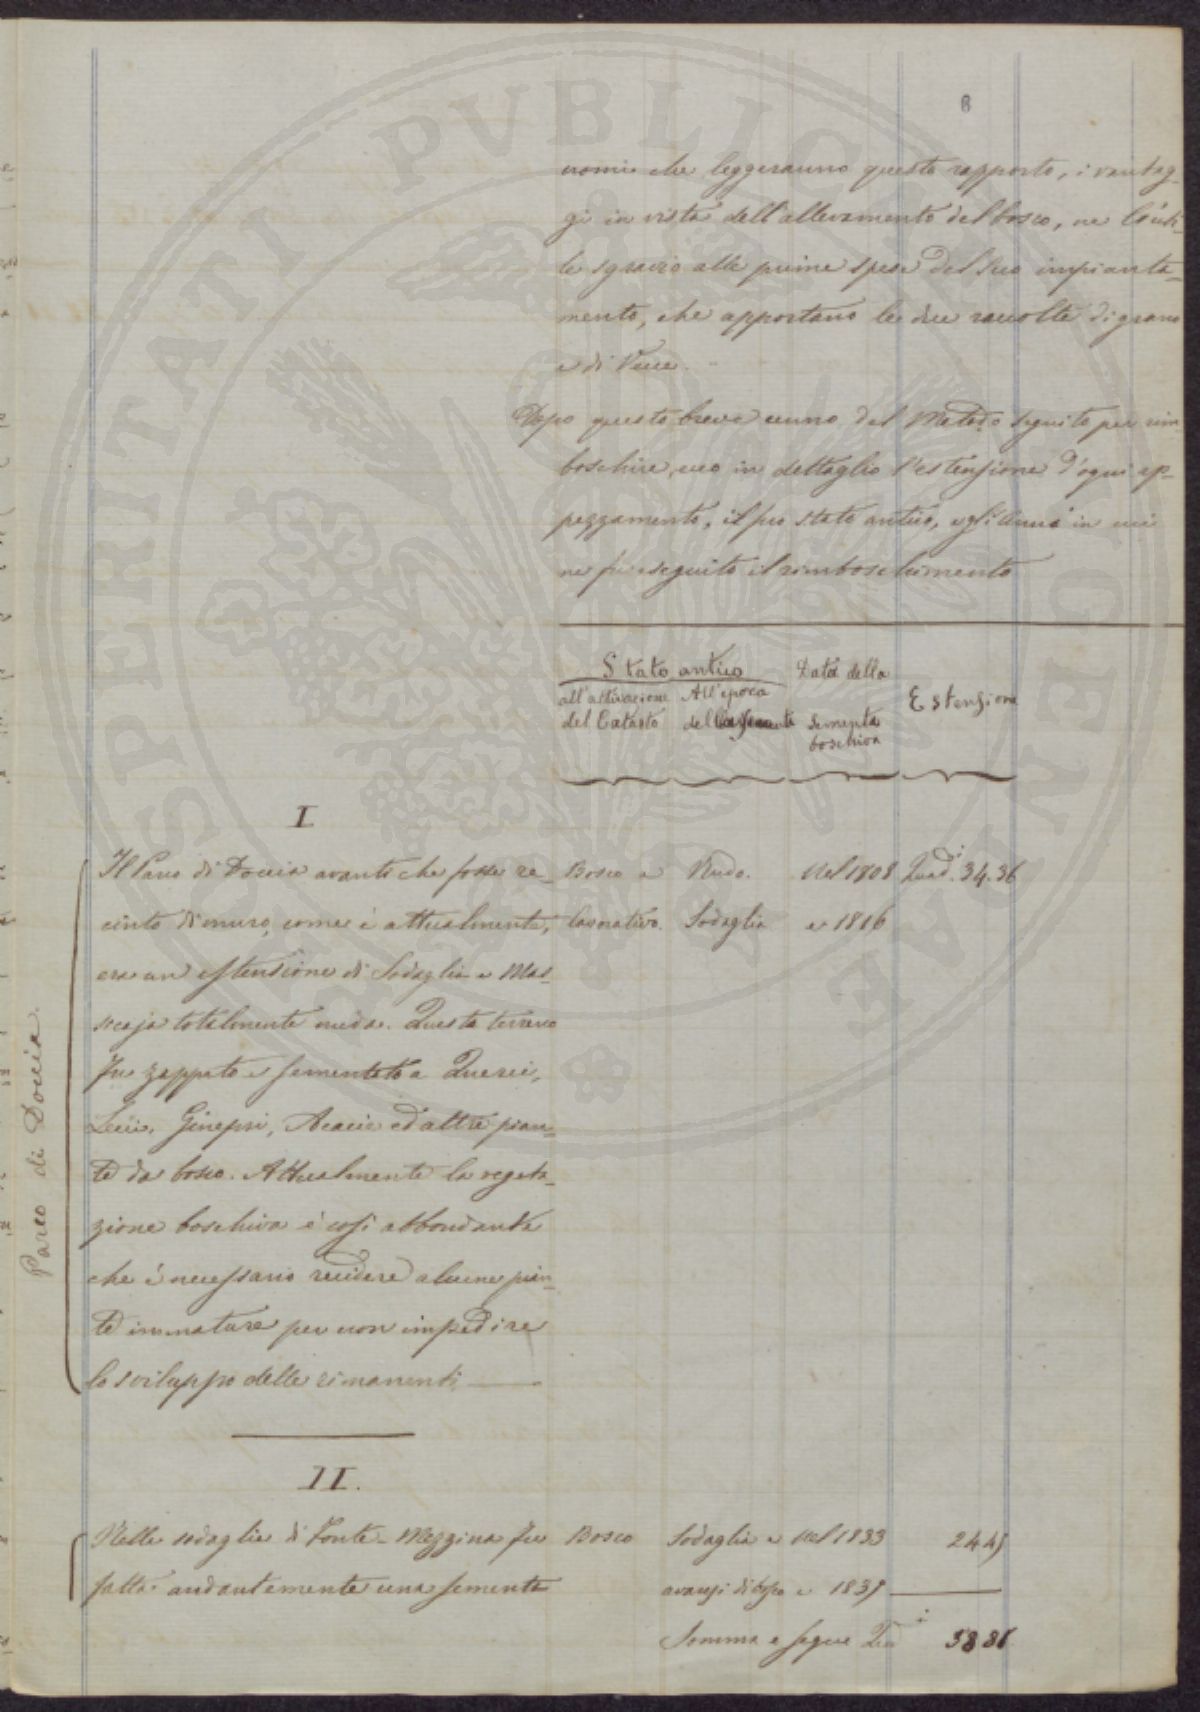 8
uomini che leggeranno questo rapporto, i vantag-
gi in vista dell'allevamento del bosco, ne l'uti-
le sgravio alle prime spese del suo impianta-
mento, che apportano le due raccolte di grano
e di Vecce.
Dopo questo breve cenno del Metodo seguito per rim
boschire, eco in dettaglio l'estensione d'ogni ap-
pezzamento, il suo stato antico, e gli Anni in cui
ne fu eseguito il rimboschimento
Stato antico
Data della
all'attivazione All'epoca
Estensione
del Catasto del
Sementa
boschiva
I
Parco di Doccia.
Il Parco di Doccia avanti che fosse re- Bosco e Nudo. Nel 1808 Quad.i 34.36
cinto di muro, come è attualmente, lavorativo. Sodaglia e 1816
era un'estensione di Sodaglia e Mac-
totalmente nuda. Questo terreno
fu zappato e sementato a Querci,
Lecci, Ginepri, Acacie ed altre pian-
te da bosco. Attualmente la vegeta-
zione boschiva è così abbondante
che è necessario recidere alcune pian-
te immature per non impedire
lo sviluppo delle rimanenti
II.
Nelle sodaglie di Fonte-Mezzina fu Bosco Sodaglia e Nel 1833 24.45
fatta andantemente una sementa avanzi di e 1835
Somma e segue Qua.i 58 81
PVBLICAE
PROSPERITATI
AVGENDAE